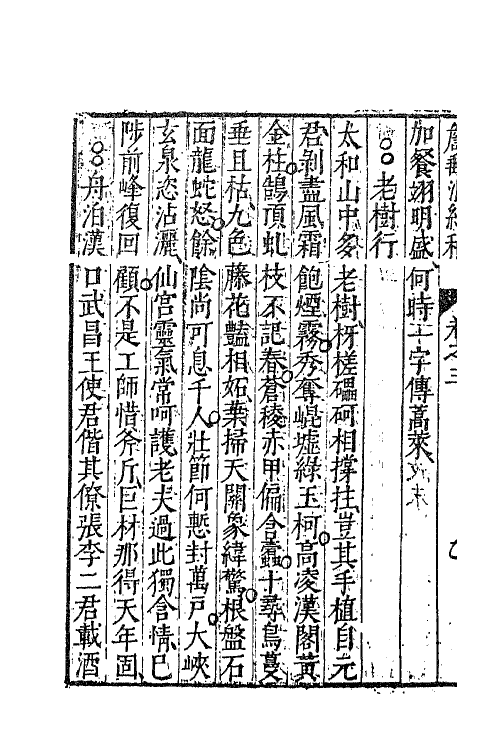 卷之三
加餐翊明盛何時一字傳高萊
○○老樹行
太和山中多老樹枒槎礧砢相撐拄豈其手植自元
君剝盡風霜飽煙霧秀奪崐墟綠玉柯高凌漢閣黃
金柱鵠頂虬枝不記春蒼稜赤甲偏含蠹十尋烏蔓
垂且枯九色藤花豔相妬葉掃天關象緯驚根盤石
面龍蛇怒餘陰尚可息千人壯節何慙封萬戶大峽
玄泉恣沾灑仙宮靈氣常呵護老夫過此獨含情已
陟前峰復回顧不是工師惜斧斤巨材那得天年固
○○舟泊漢口武昌王使君偕其僚張李二君載酒